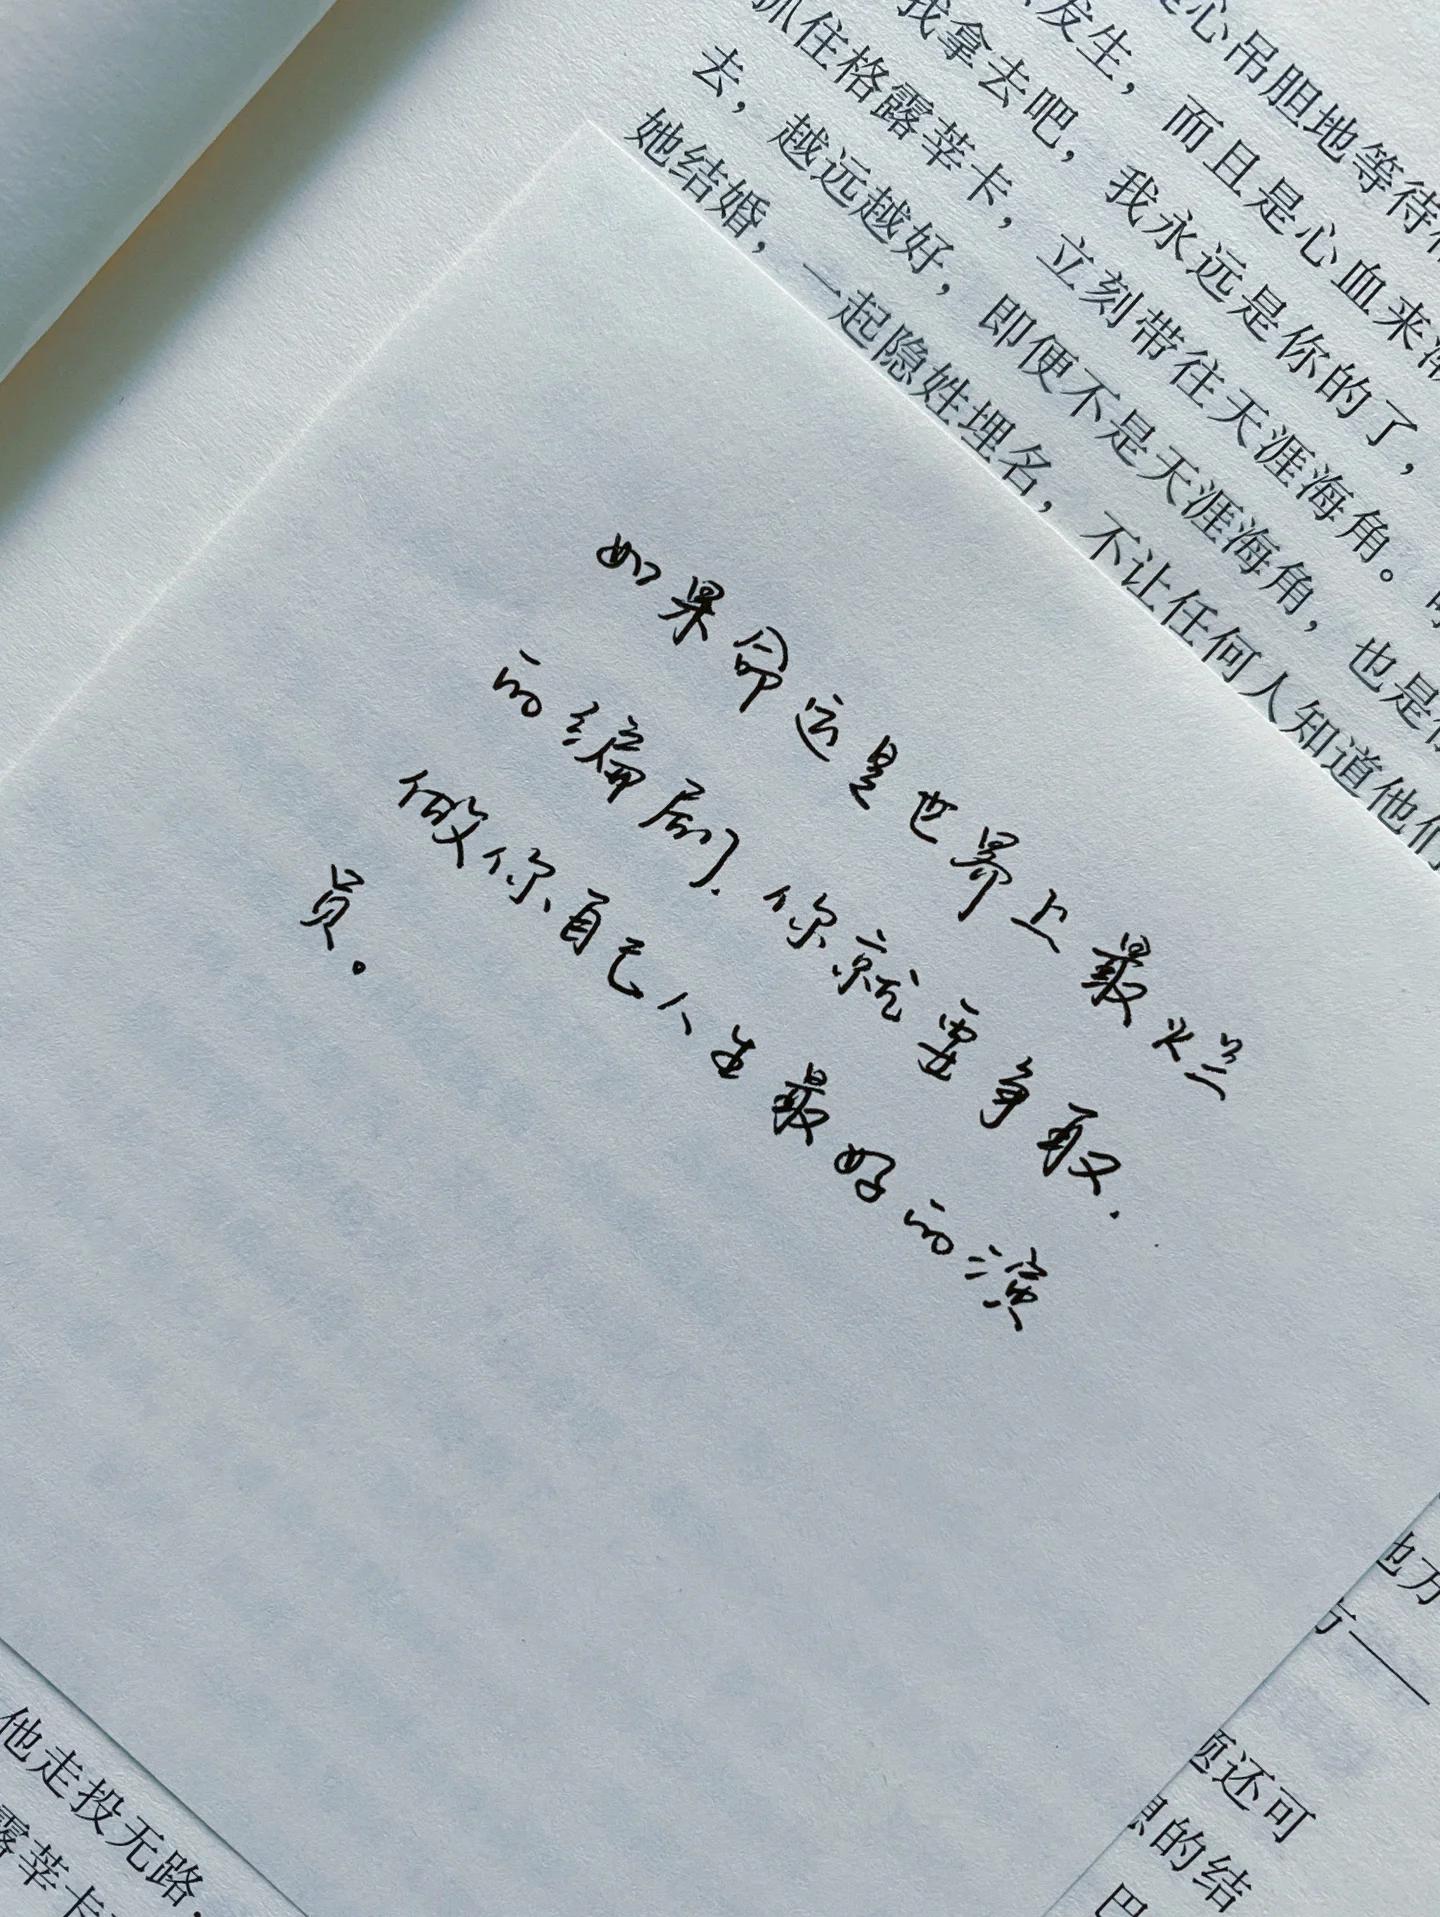 心吊胆地等待
发生，而且是心血来
我拿去吧，我永远是你的了，
抓住格露莘卡，立刻带往天涯海角。
去，越远越好，即便不是天涯海角，也是
她结婚，一起隐姓埋名，不让任何人知道他们
如果命运是世界上最烂
的编剧.你就要争取.
做你自己人生最好的演
员。
地方
方——
题还可
的结
巴
他走投无路，
露莘卡